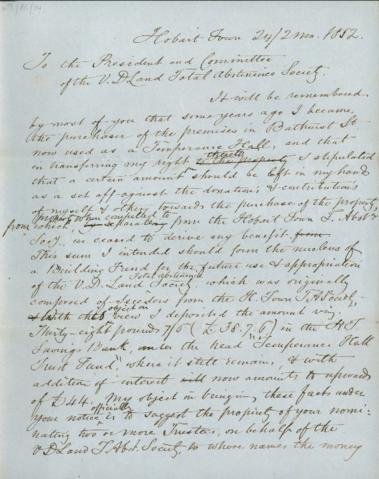 Hobart Town 24/2 mo. 1852
To the President and Committee
of the V. D Land Total Abstinence Society.
It will be remembered
by most of you that some years ago I became
the purchaser of the premises in Bathurst St
now used as a Temperance Hall, and that
in transferring my right I stipulated
that a certain amount should be left in my hands
as a set off against the donations & contributions
of myself & others towards the purchase of the property
from which, compelled to from the Hobart Town T. Abste
Socy. we ceased to derive any benefit. from
This sum I intended should form the nucleus of
a Building Fund for the future use & appropriation
of the V. D. Land Total Abstinence Society, which was originally
composed of Seceders from the H. Town T A Society.
with this object in view I deposited the amount viz.
Thirty-eight pounds 7/6 (£38.7.6) in the H T.
Savings Bank, under the head "Temperance Hall
Trust Fund", where it still remains, & with
addition of interest now amounts to upwards
of £44. My object in bringing these facts under
your notice officially is to suggest the propriety of your nomi-
nating two or more Trustees, on behalf of the
V D Land T Abst. Society to whose names the money